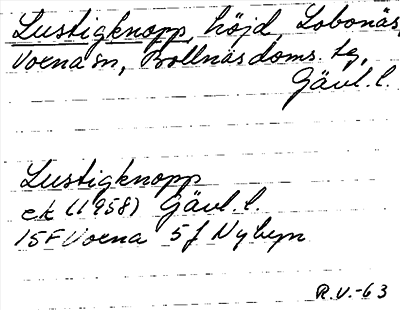 Lustigknopp, höjd, Lobonäs,
Voxna sn, Bollnäs doms. tg,
Gävl. l.
Lustigknopp
ek (1958) Gävl. l.
15F Voxna 5f Nybyn
R.V.-63